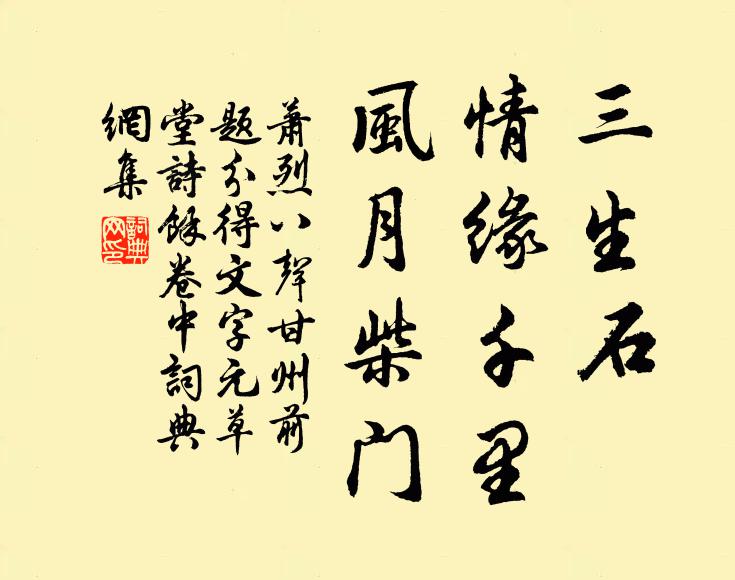 三生石
情缘千里
風月柴门
蕭烈八聲甘州前
题分得文字元草
堂詩餘卷中詞典
網集
詞典
网印